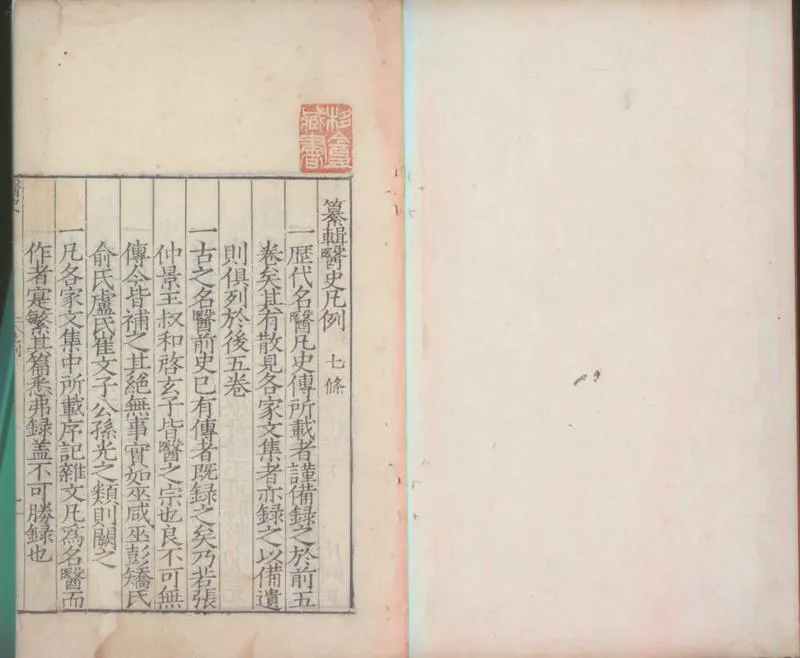 纂輯醫史凡例 七條
一歷代名醫凡史傳所載者謹備録之於前五
卷矣其有散見各家文集者亦録之以備遺
則俱列於後五卷
一古之名醫前史已有傳者既録之矣乃若張
仲景王叔和啓玄子皆醫之宗也良不可無
傳今皆補之其絕無事實如巫咸巫彭矯氏
俞氏盧氏崔文子公孫光之類則闕之
一凡各家文集中所載序記雜文凡爲名醫而
作者寔繁其篇悉弗録盖不可勝録也
藏書